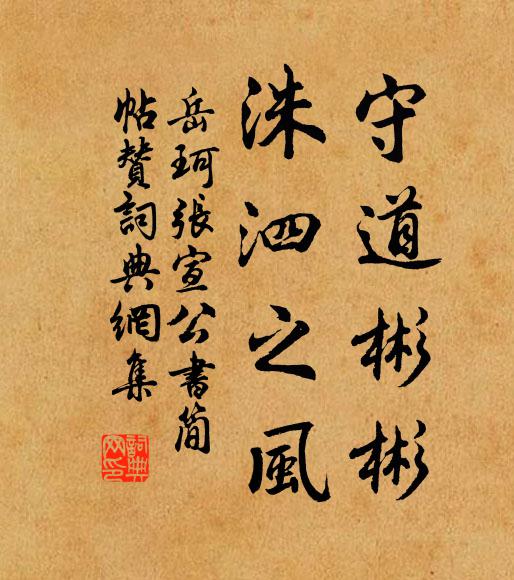 守道彬彬
洙泗之風
岳珂張宣公書簡
帖贊詞典網集
詞典網印